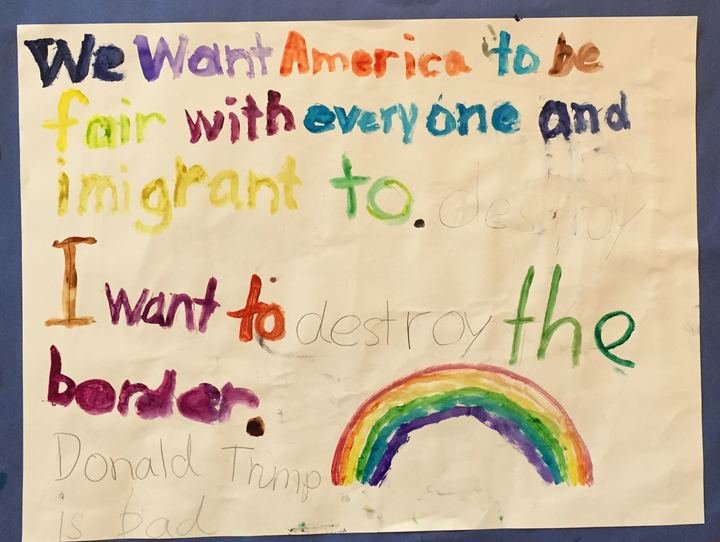 We Want America to be
fair with everyone and
imigrant to. destroy
I want to destroy the
border.
Donald Trump
is bad